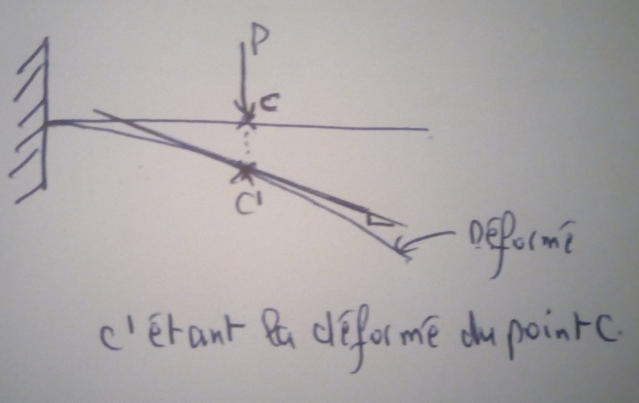 P
C
C'
Déformé
C' étant la déformé du point C.